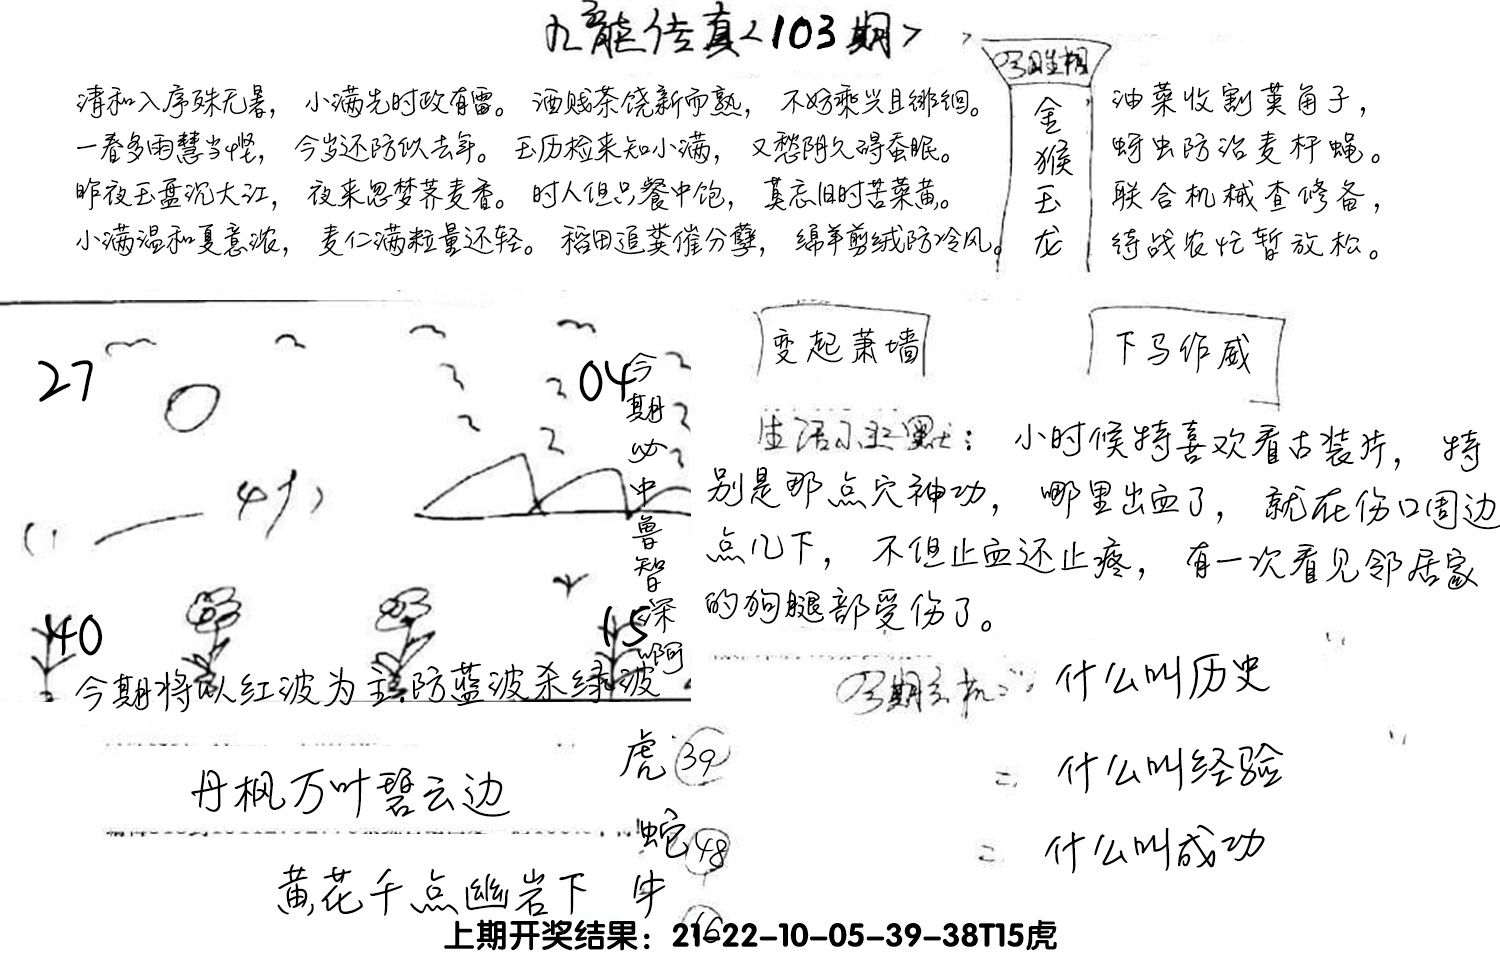 九龍传真<103期>
清和入序殊无暑，小满先时政有雷。酒贱茶饶新而熟，不妨乘兴且徘徊。
一春多雨慧当悭，今岁还防似去年。玉历检来知小满，又愁阴久碍蚕眠。
昨夜玉盘沉大江，夜来思梦荞麦香。时人但只餐中饱，莫忘旧时苦菜黄。
小满温和夏意浓，麦仁满粒量还轻。稻田追粪催分孽，绵羊剪绒防冷风。
今日生相
金猴玉龙
油菜收割荚角子，
蚜虫防治麦秆蝇。
联合机械查修备，
待战农忙暂放松。
27
04
40
15
今期必中鲁智深啊
今期将以红波为主防蓝波杀绿波
变起萧墙
下马作威
生活小幽默：小时候特喜欢看古装片，特
别是那点穴神功，哪里出血了，就在伤口周边
点几下，不但止血还止疼，有一次看见邻居家
的狗腿部受伤了。
什么叫历史
什么叫经验
什么叫成功
丹枫万叶碧云边
黄花千点幽岩下
虎 39
蛇 48
牛 16
上期开奖结果：21-22-10-05-39-38T15虎